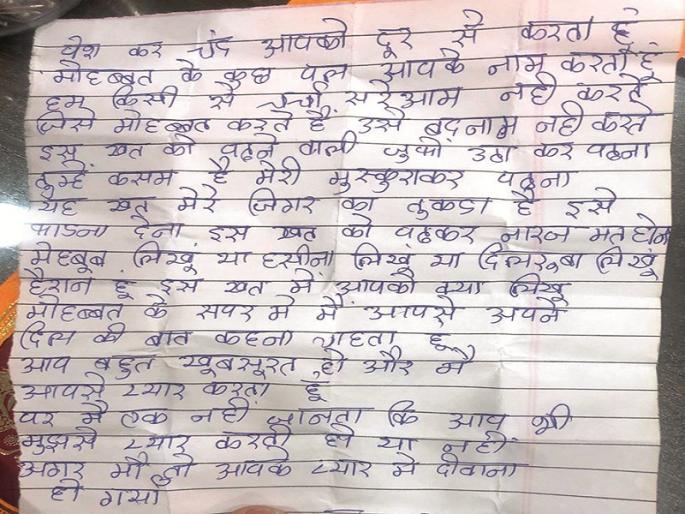 पेश कर चंद आपको दूर से करता हूं
मोहब्बत के कुछ पल आपके नाम करता हूं
हम किसी से चर्चा सरेआम नही करते
जिसे मोहब्बत करते हैं उसे बदनाम नही करते
इस खत को पढने वाली जुल्फे उठा कर पढना
तुम्हे कसम है मेरी मुस्कुराकर पढना
यह खत मेरे जिगर का तुकडा है इसे
देना इस खत को पढकर नारज मत होना
मेहबूब लिखूं या हसीना लिखूं या दिलरूबा लिखूं
हैरान हूं इस खत में आपको क्या लिखू
मोहब्बत के सपर मे मैं आपसे अपने
दिल की बात कहना चाहता हू
आप बहुत खूबसूरत हो और मै
आपसे प्यार करता हूं
पर मै एक नही जानता कि आप भी
मुझसे प्यार करती हो या नहीं
अगर मौ तो आपके प्यार मे दीवाना
हो गया